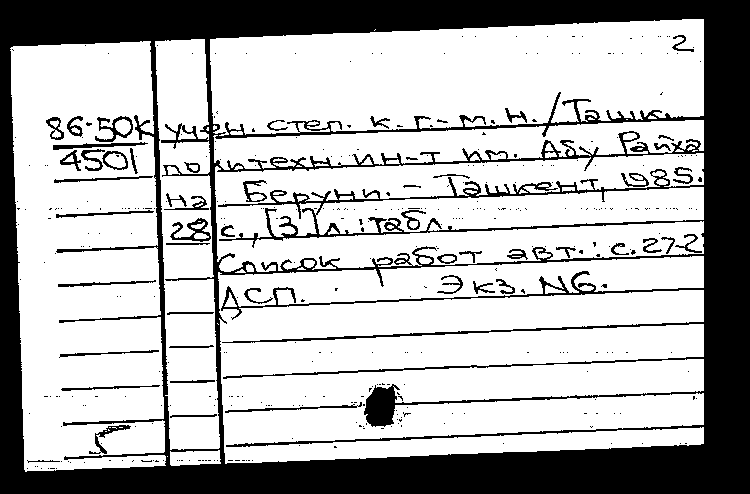 2
86-50К учен. степ. к. г.-м. н. / Ташк.
4501 политехн. ин-т им. Абу Райха
на Беруни. - Ташкент, 1985.
28 с., [3] л. : табл.
Список работ авт.: с. 27-2
ДСП. Экз. N6.